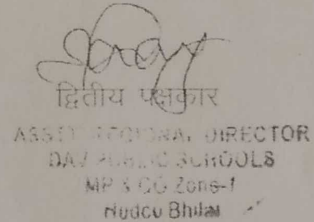 द्वितीय पक्षकार
ASSTT REGIONAL DIRECTOR
DAV PUBLIC SCHOOLS
MP & CG Zone-1
Hudco Bhilai